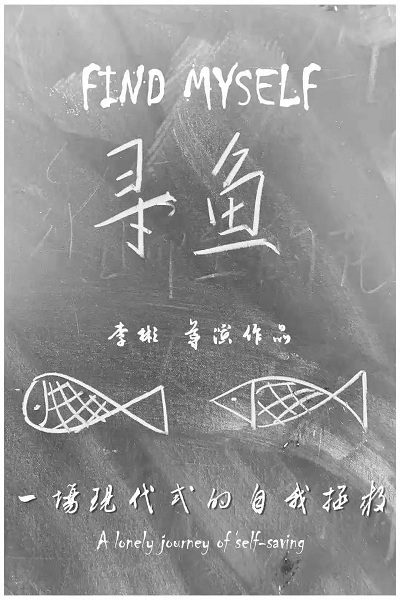 FIND MYSELF
寻鱼
李彬 导演作品
一場現代式的自我拯救
A lonely journey of self-saving